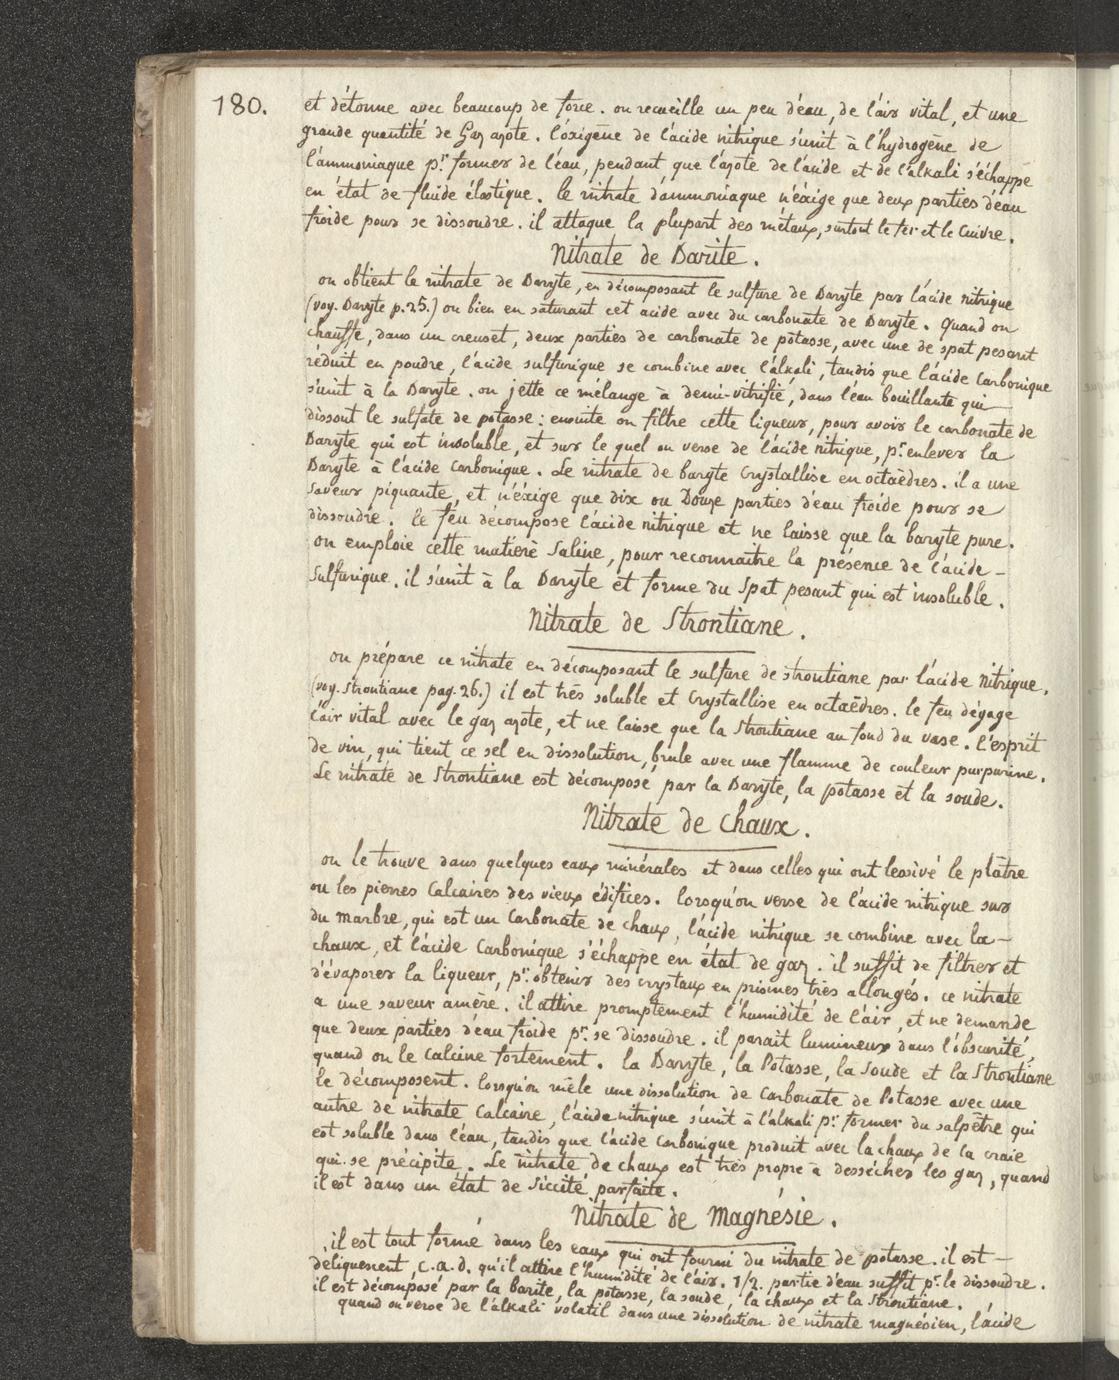 180.
et détonne avec beaucoup de force. on recueille un peu d'eau, de l'air vital, et une
grande quantité de Gaz azote. l'oxigène de l'acide nitrique s'unit à l'hydrogène de
l'ammoniaque pr. former de l'eau, pendant que l'azote de l'acide et de l'alkali s'échappe
en état de fluide élastique. le nitrate d'ammoniaque n'éxige que deux parties d'eau
froide pour se dissoudre. il attaque la plupart des métaux, surtout le fer et le Cuivre.
Nitrate de Barite.
on obtient le nitrate de Baryte, en décomposant le sulfure de Baryte par l'acide nitrique
(voy. Baryte p. 25.) ou bien en saturant cet acide avec du carbonate de Baryte. Quand on
chauffe, dans un creuset, deux parties de carbonate de potasse, avec une de spat pesant
réduit en poudre, l'acide sulfurique se combine avec l'alkali, tandis que l'acide Carbonique
s'unit à la Baryte. on jette ce mélange à demi-vitrifié, dans l'eau bouillante qui
dissout le sulfate de potasse: ensuite on filtre cette liqueur, pour avoir le carbonate de
Baryte qui est insoluble, et sur le quel on verse de l'acide nitrique, pr. enlever la
Baryte à l'acide Carbonique. Le nitrate de baryte Crystallise en octaèdres. il a une
saveur piquante, et n'éxige que dix ou Douze parties d'eau froide pour se
dissoudre. le feu décompose l'acide nitrique et ne laisse que la baryte pure.
on emploie cette matière Saline, pour reconnaitre la présence de l'acide-
Sulfurique. il s'unit à la Baryte et forme du Spat pesant qui est insoluble.
Nitrate de Strontiane.
on prépare ce nitrate en décomposant le sulfure de strontiane par l'acide Nitrique.
(voy. Strontiane pag. 26.) il est très soluble et Crystallise en octaèdres. le feu dégage
l'air vital avec le gaz azote, et ne laisse que la Strontiane au fond du vase. l'esprit
de vin, qui tient ce sel en dissolution, brule avec une flamme de couleur purpurine.
Le nitrate de Strontiane est décomposé par la Baryte, la potasse et la soude.
Nitrate de Chaux.
on le trouve dans quelques eaux minérales et dans celles qui ont lessivé le plâtre
ou les pierres Calcaires des vieux édifices. lorsqu'on verse de l'acide nitrique sur
du marbre, qui est un Carbonate de chaux, l'acide nitrique se combine avec la-
chaux, et l'acide Carbonique s'échappe en état de gaz. il suffit de filtrer et
d'évaporer la liqueur, pr. obtenir des crystaux en prismes très allongés. ce nitrate
a une saveur amère. il attire promptement l'humidité de l'air, et ne demande
que deux parties d'eau froide pr. se dissoudre. il parait lumineux dans l'obscurité,
quand on le calcine fortement. la Baryte, la Potasse, la Soude et la Strontiane
le décomposent. lorsqu'on mêle une dissolution de Carbonate de Potasse avec une
autre de nitrate Calcaire, l'acide nitrique s'unit à l'alkali pr. former du salpêtre qui
est soluble dans l'eau, tandis que l'acide Carbonique produit avec la chaux de la craie
qui se précipite. Le nitrate de chaux est très propre à dessécher les gaz, quand
il est dans un état de Siccité parfaite.
Nitrate de Magnésie.
il est tout formé dans les eaux qui ont fourni du nitrate de potasse. il est-
déliquescent, c.a.d. qu'il attire l'humidité de l'air. 1/2. partie d'eau suffit pr. le dissoudre.
il est décomposé par la barite, la potasse, la soude, la chaux et la Strontiane.
quand on verse de l'alkali volatil dans une dissolution de nitrate magnésien, l'acide